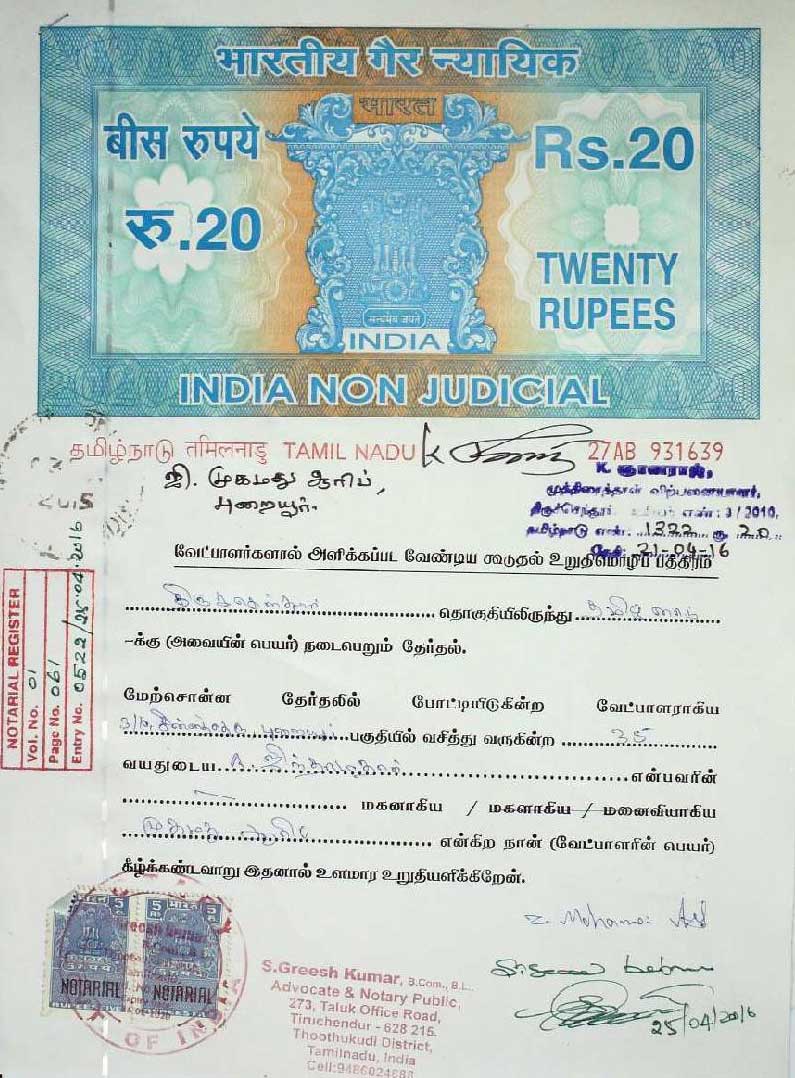 भारतीय गैर न्यायिक
भारत
बीस रुपये
Rs.20
रु.20
TWENTY
RUPEES
सत्यमेव जयते
INDIA
INDIA NON JUDICIAL
தமிழ்நாடு तमिलनाडु TAMIL NADU
27AB 931639
ஜி. முகமது ஆரிப்,
புறையூர்.
முத்திரைத்தாள் விற்பனையாளர்,
எண்: 3/2010,
தமிழ்நாடு எண்: 1322 ரூ 20
தேதி: 21-04-16
வேட்பாளர்களால் அளிக்கப்பட வேண்டிய கூடுதல் உறுதிமொழிப் பத்திரம்
தொகுதியிலிருந்து
-க்கு (அவையின் பெயர்) நடைபெறும் தேர்தல்.
மேற்சொன்ன தேர்தலில் போட்டியிடுகின்ற வேட்பாளராகிய
பகுதியில் வசித்து வருகின்ற 35
வயதுடைய என்பவரின்
மகனாகிய / மகளாகிய / மனைவியாகிய
முகமது ஆரிப் என்கிற நான் (வேட்பாளரின் பெயர்)
கீழ்க்கண்டவாறு இதனால் உளமார உறுதியளிக்கிறேன்.
NOTARIAL REGISTER
Vol. No. 01
Page No. 061
Entry No. 0522/25.04.2016
5 भारत 5
NOTARIAL NOTARIAL
OF INDIA
S.Greesh Kumar, B.Com., B.L.,
Advocate & Notary Public,
273, Taluk Office Road,
Tiruchendur - 628 215.
Thoothukudi District,
Tamilnadu, India
25/04/2016